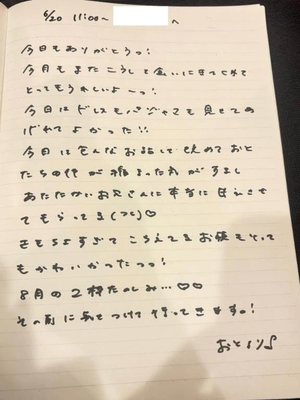 6/20 11:00~ へ
今日もありがとうっ!
今月もまたこうして会いにきてくれて
とってもうれしいよ〜っ!
今日はドレスもパジャマも見せてあ
げれてよかった!!
今日は色んなお話しして改めておと
たちの仲が深まった気がするし
あたたかいお兄さんに本当に甘えさせ
てもらってる(つ
きもちよすぎてこらえてるお顔もとって
もかわいかったっっ!
8月の2枠たのしみ…♡♡
その前に気をつけて行ってきますっ!
おとより